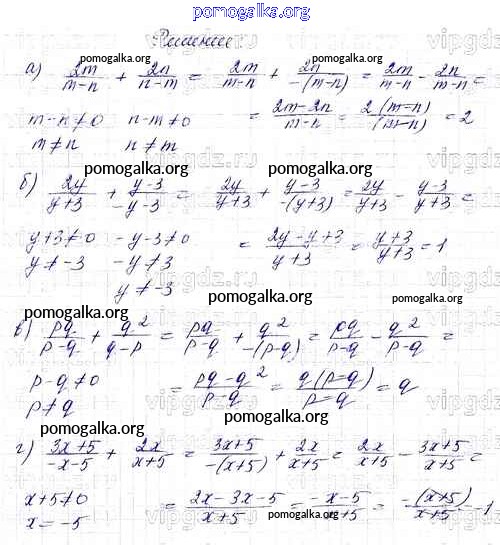 pomogalka.org
Решение
pomogalka.org pomogalka.org
а) 2m/(m-n) + 2n/(n-m) = 2m/(m-n) + 2n/(-(m-n)) = 2m/(m-n) - 2n/(m-n) =
m-n≠0 n-m≠0 = (2m-2n)/(m-n) = 2(m-n)/(m-n) = 2
m≠n n≠m
pomogalka.org pomogalka.org
б) 2y/(y+3) + (y-3)/(-y-3) = 2y/(y+3) + (y-3)/(-(y+3)) = 2y/(y+3) - (y-3)/(y+3) =
y+3≠0 -y-3≠0 = (2y-y+3)/(y+3) = (y+3)/(y+3) = 1
y≠-3 -y≠3
y≠-3
pomogalka.org pomogalka.org
в) pq/(p-q) + q²/(q-p) = pq/(p-q) + q²/(-(p-q)) = pq/(p-q) - q²/(p-q) =
p-q≠0 = (pq-q²)/(p-q) = q(p-q)/(p-q) = q
p≠q
pomogalka.org
г) (3x+5)/(-x-5) + 2x/(x+5) = (3x+5)/(-(x+5)) + 2x/(x+5) = 2x/(x+5) - (3x+5)/(x+5) =
x+5≠0 = (2x-3x-5)/(x+5) = (-x-5)/(x+5) = -(x+5)/(x+5) = -1
x=-5
pomogalka.org pomogalka.org